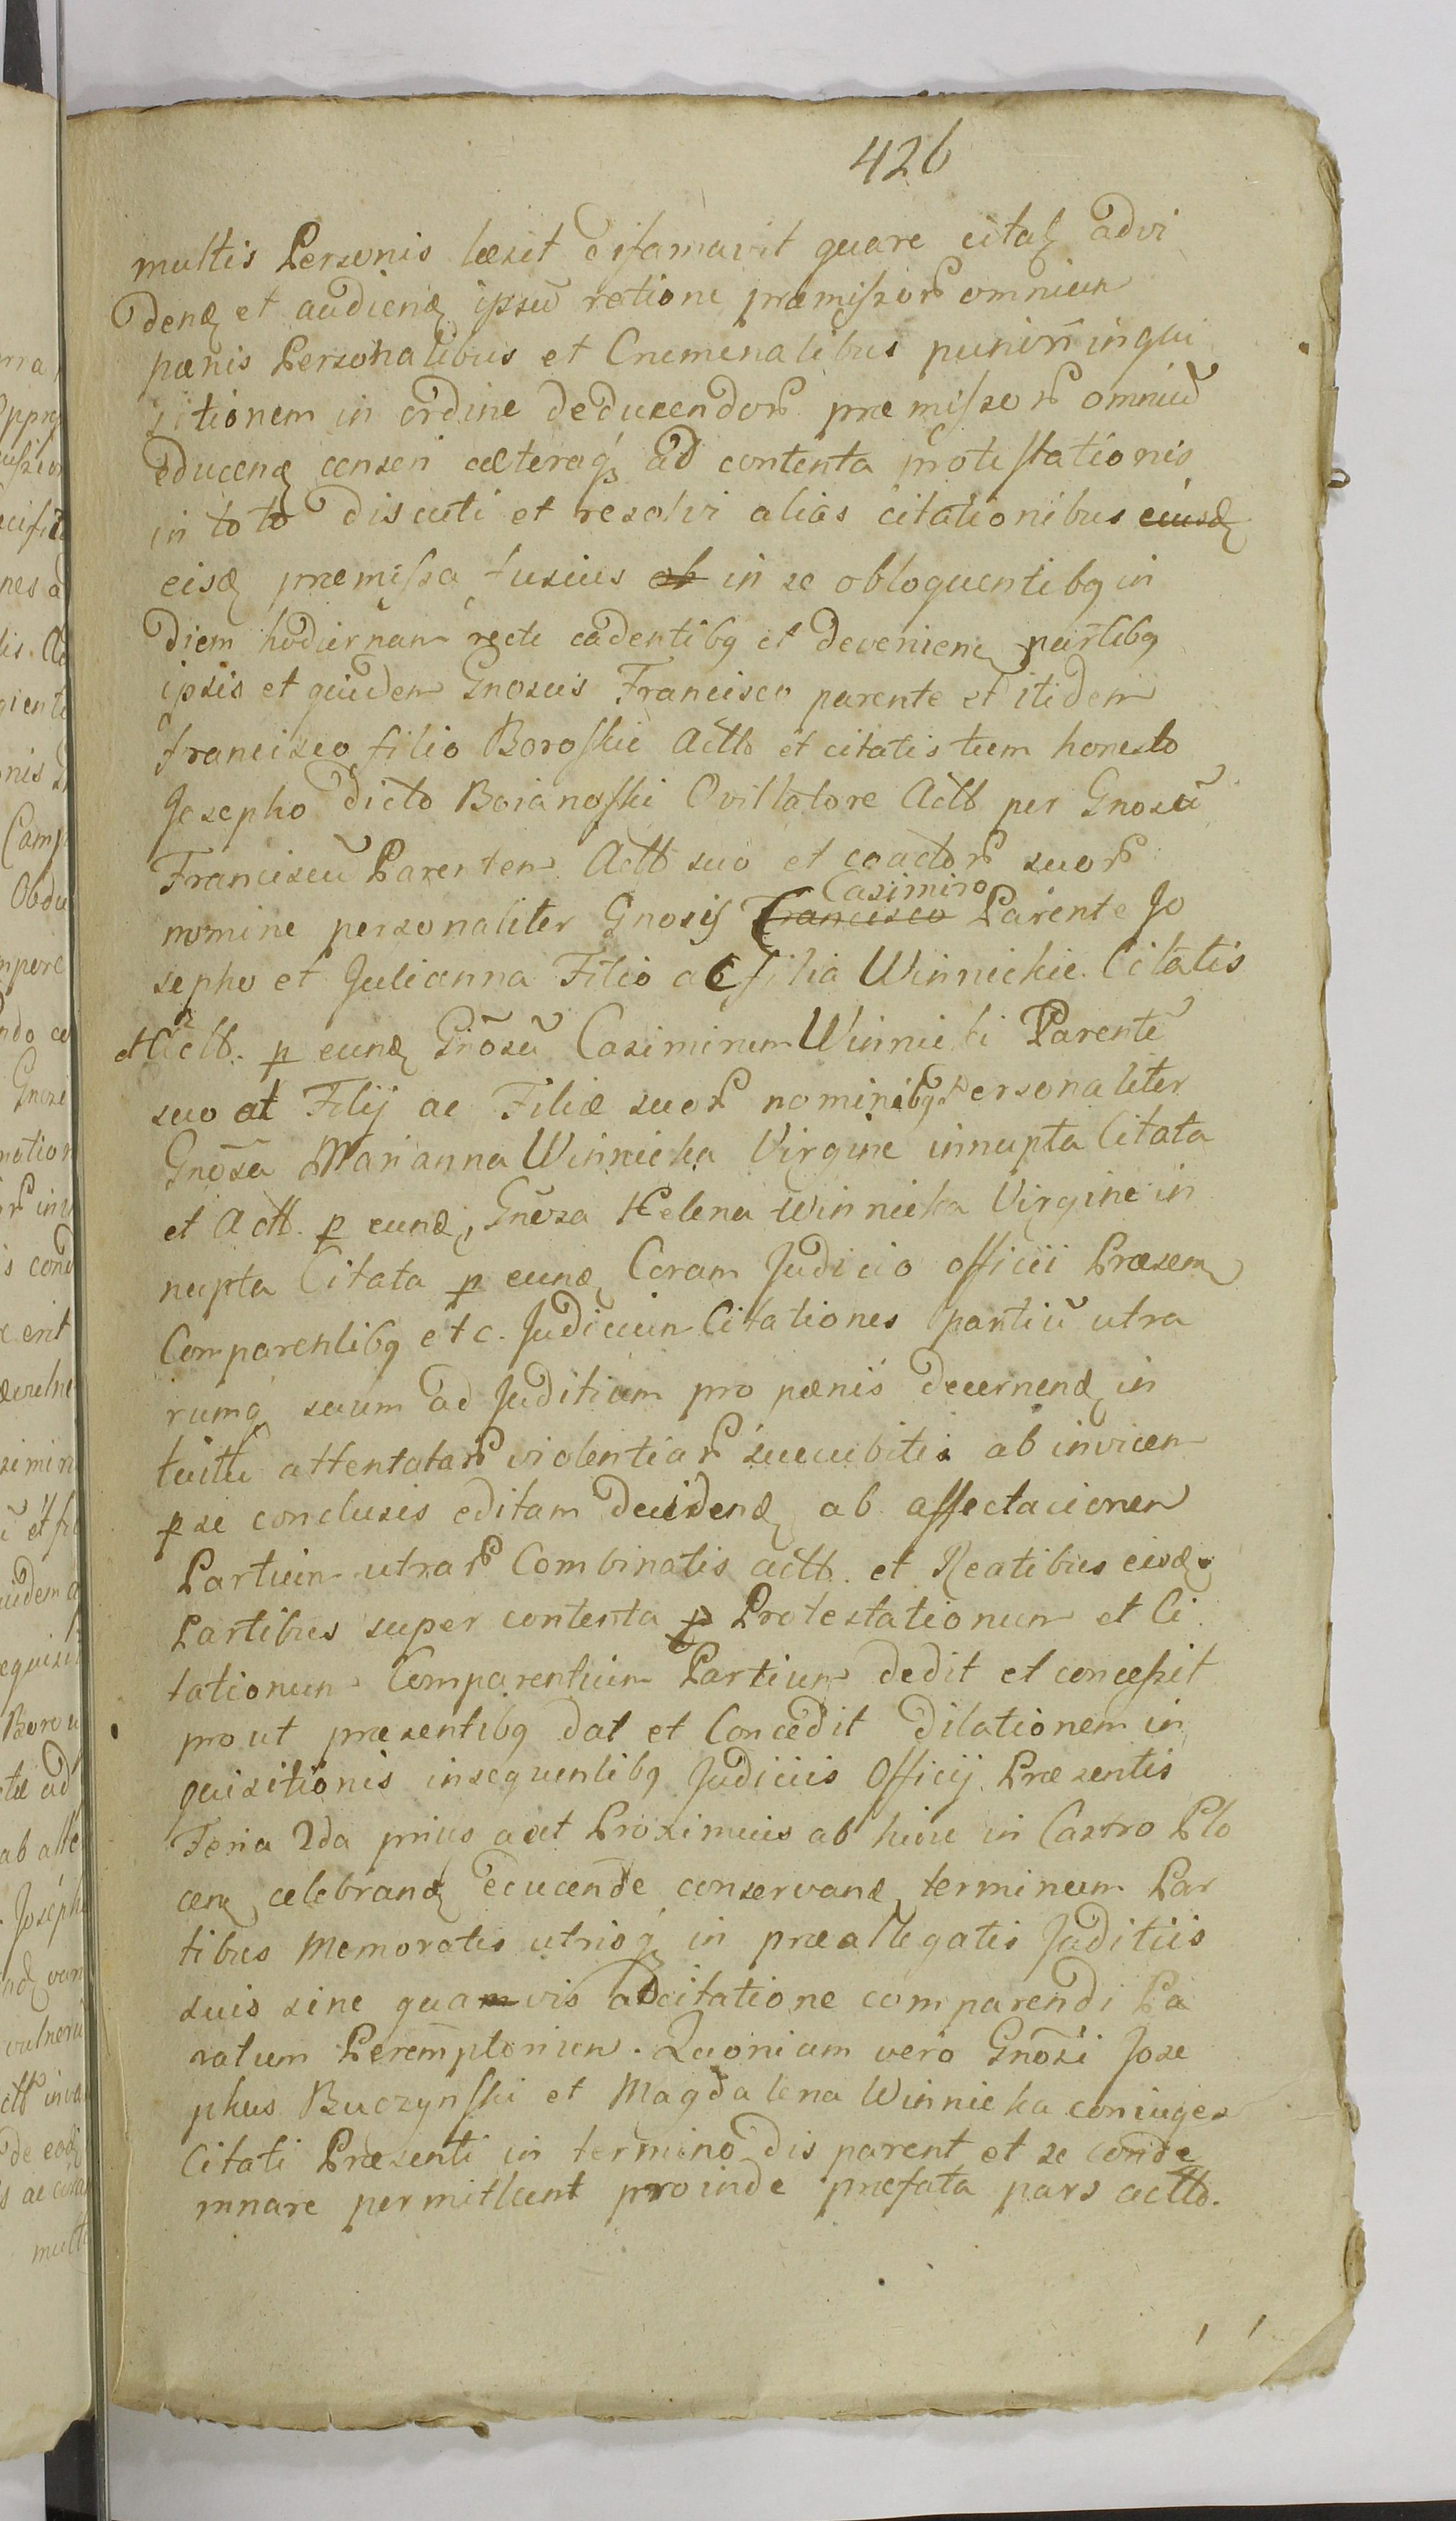 426
multis Personis læsit difamavit quare citat advi
dend et audiend ipsū ratione præmissor omnium
pœnis Personalibus et Criminalibus puniri inqui
sitionem in ordine deducendor præmissor omniū
educend censeri cæteraq ad contenta protestationis
in toto discuti et resolvi alias citationibus eiusd
eisd præmissa fusius ob in se obloquentibq in
diem hodiernam recte cadentibq et devenien partibq
ipsis et quidem Gnosus Francisco parente et itidem
Francisco filio Boroskie Actb et citatis tum honesto
Josepho dicto Boianoski Ovillatore Actb per Gnosū
Franciscū Parentem Actb suo et coactor suor
nomine personaliter Gnosis Francisco Casimiro Parente Jo
sepho et Julianna Filio ac filia Winnickie Citatis
et Actb. p eund Gnōsū Casimirum Winnicki Parentē
suo at Filij ac Filiæ suor nominibq Personaliter
Gnōsa Marianna Winnicka Virgine innupta Citata
et Actb. p eund, Gnōsa Helena Winnicka Virgine in
nupta Citata p eund Coram Judicio officii Præsen
Comparentibq etc. Judicium Citationes partiū utra
rumq suum ad Juditium pro pœnis decernend in
tuitu attentatar violentiar succubitis ab invicem
p se conclusis editam decidend ab affectacionem
Partium utrar Combinatis actb. et Reatibus eisd
Partibus super contenta p Protestationum et Ci
tationum Comparentium Partium dedit et concessit
prout præsentibq dat et Concedit dilationem in
quisitionis insequentibq Judiciis Officij Præsentis
Feria 2da prius aut Proximius ab hinc in Castro Plo
cen celebrand educende conservand terminum Par
tibus Memoratis utrisq in præallegatis Juditiis
suis sine quamvis adcitatione comparendi Pa
ratum Perēmptorium. Quoniam vero Gnōsi Jose
phus Buczynski et Magdalena Winnicka coniuges
Citati Præsenti in termino disparent et se conde
mnare permittunt proinde præfata pars actb.